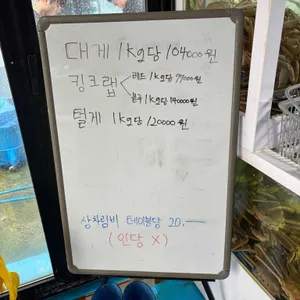 대게 1kg당 104000원
킹크랩 레드 1kg당 99000원
블루 1kg당 140000원
털게 1kg당 120000원
상차림비 테이블당 20.—
(인당 X)